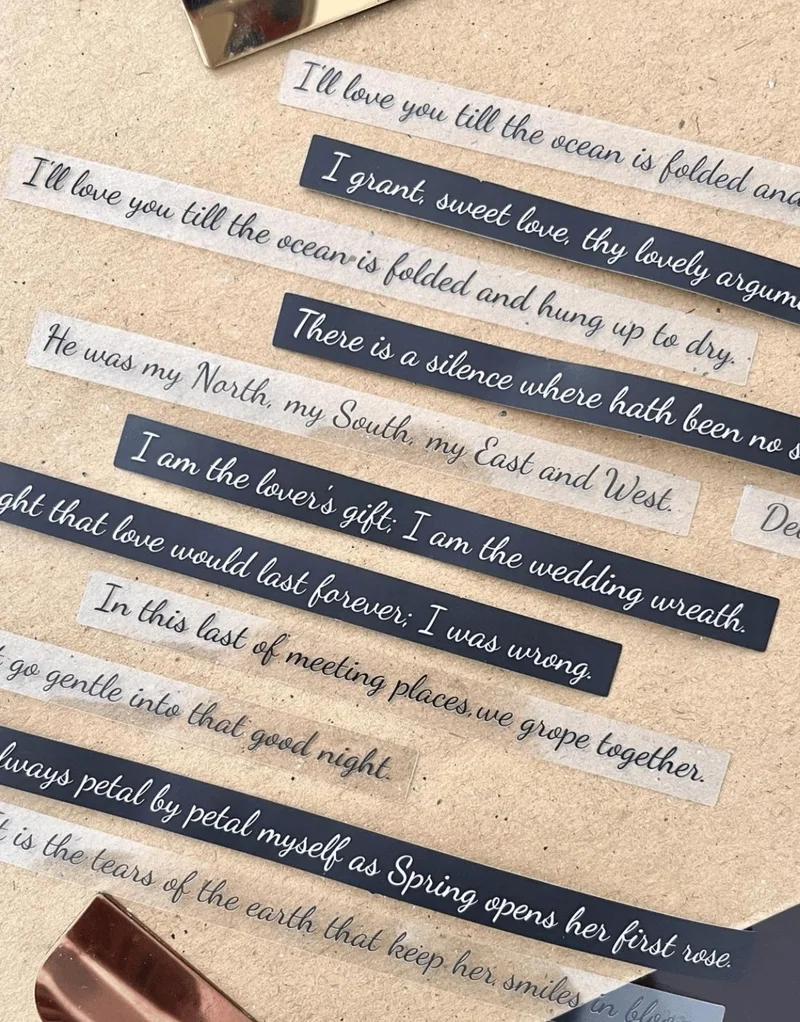 I'll love you till the ocean is folded and
I grant, sweet love, thy lovely
I'll love you till the ocean is folded and hung up to dry.
There is a silence where hath been no
He was my North, my South, my East and West.
I am the lover's gift; I am the wedding wreath.
that love would last forever; I was wrong.
In this last of meeting places, we grope together.
go gentle into that good night.
petal by petal myself as Spring opens her first rose.
is the tears of the earth that keep her smiles in